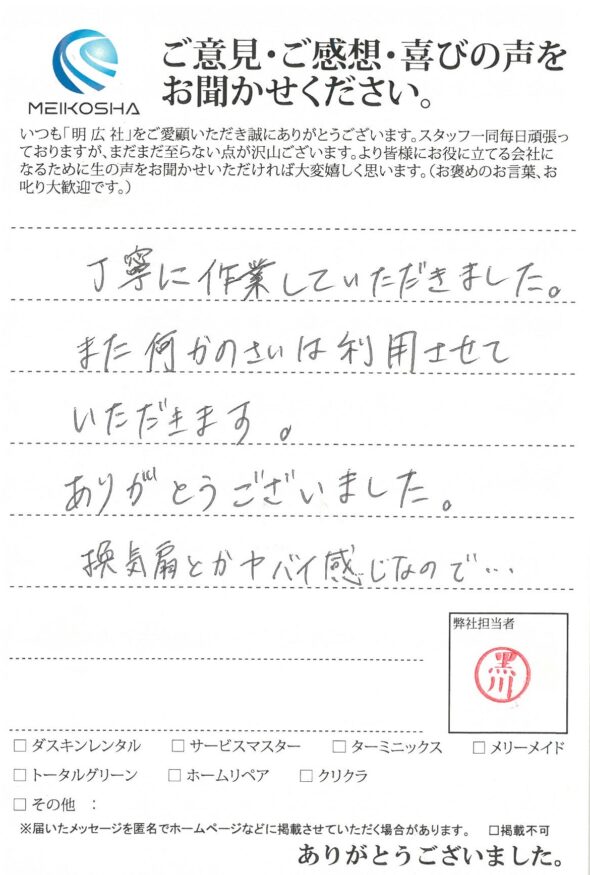 MEIKOSHA
ご意見・ご感想・喜びの声を
お聞かせください。
いつも「明広社」をご愛顧いただき誠にありがとうございます。スタッフ一同毎日頑張っ
ておりますが、まだまだ至らない点が沢山ございます。より皆様にお役に立てる会社に
なるために生の声をお聞かせいただければ大変嬉しく思います。（お褒めのお言葉、お
叱り大歓迎です。）
丁寧に作業していただきました。
また何かのさいは利用させて
いただきます。
ありがとうございました。
換気扇とかヤバイ感じなので…
弊社担当者
黒川
□ ダスキンレンタル □ サービスマスター □ ターミニックス □ メリーメイド
□ トータルグリーン □ ホームリペア □ クリクラ
□ その他 ：
※届いたメッセージを匿名でホームページなどに掲載させていただく場合があります。 □掲載不可
ありがとうございました。